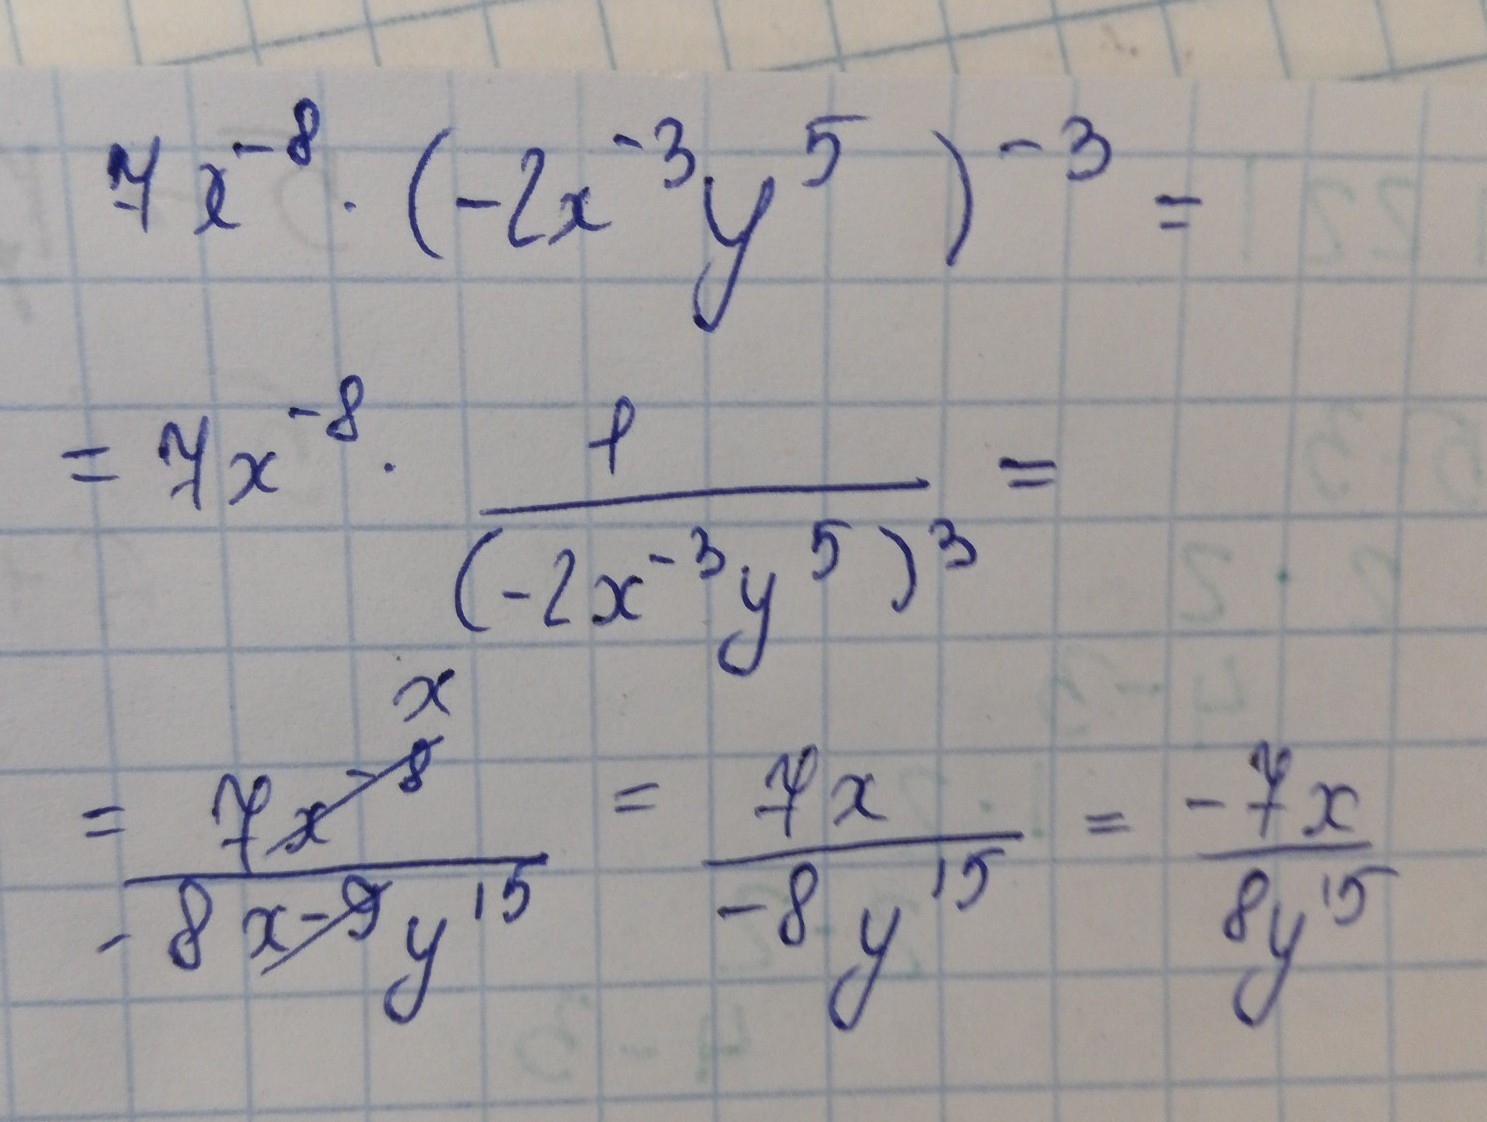 7x⁻⁸ · (-2x⁻³y⁵)⁻³ =
= 7x⁻⁸ · 1/(-2x⁻³y⁵)³ =
x
= 7x⁻⁸/-8x⁻⁹y¹⁵ = 7x/-8y¹⁵ = -7x/8y¹⁵